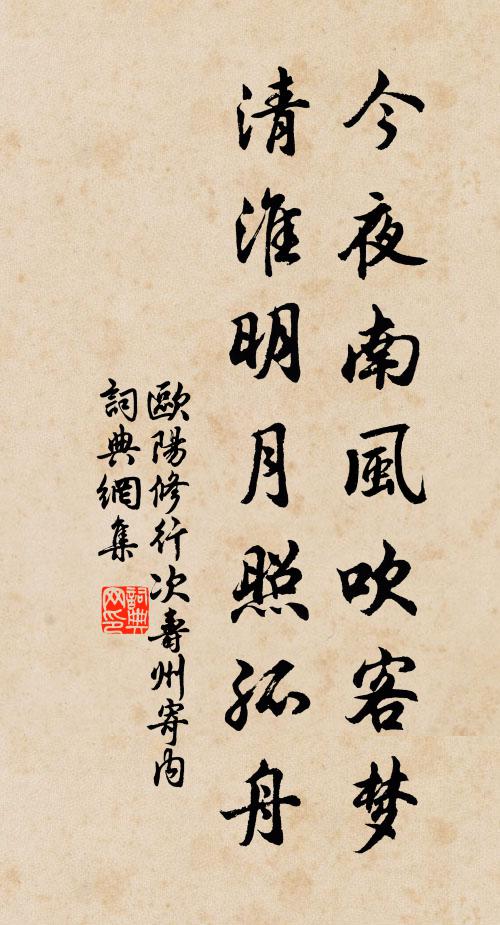 今夜南風吹客梦
清淮明月照孤舟
歐陽修行次壽州寄內
詞典網集
詞典网印